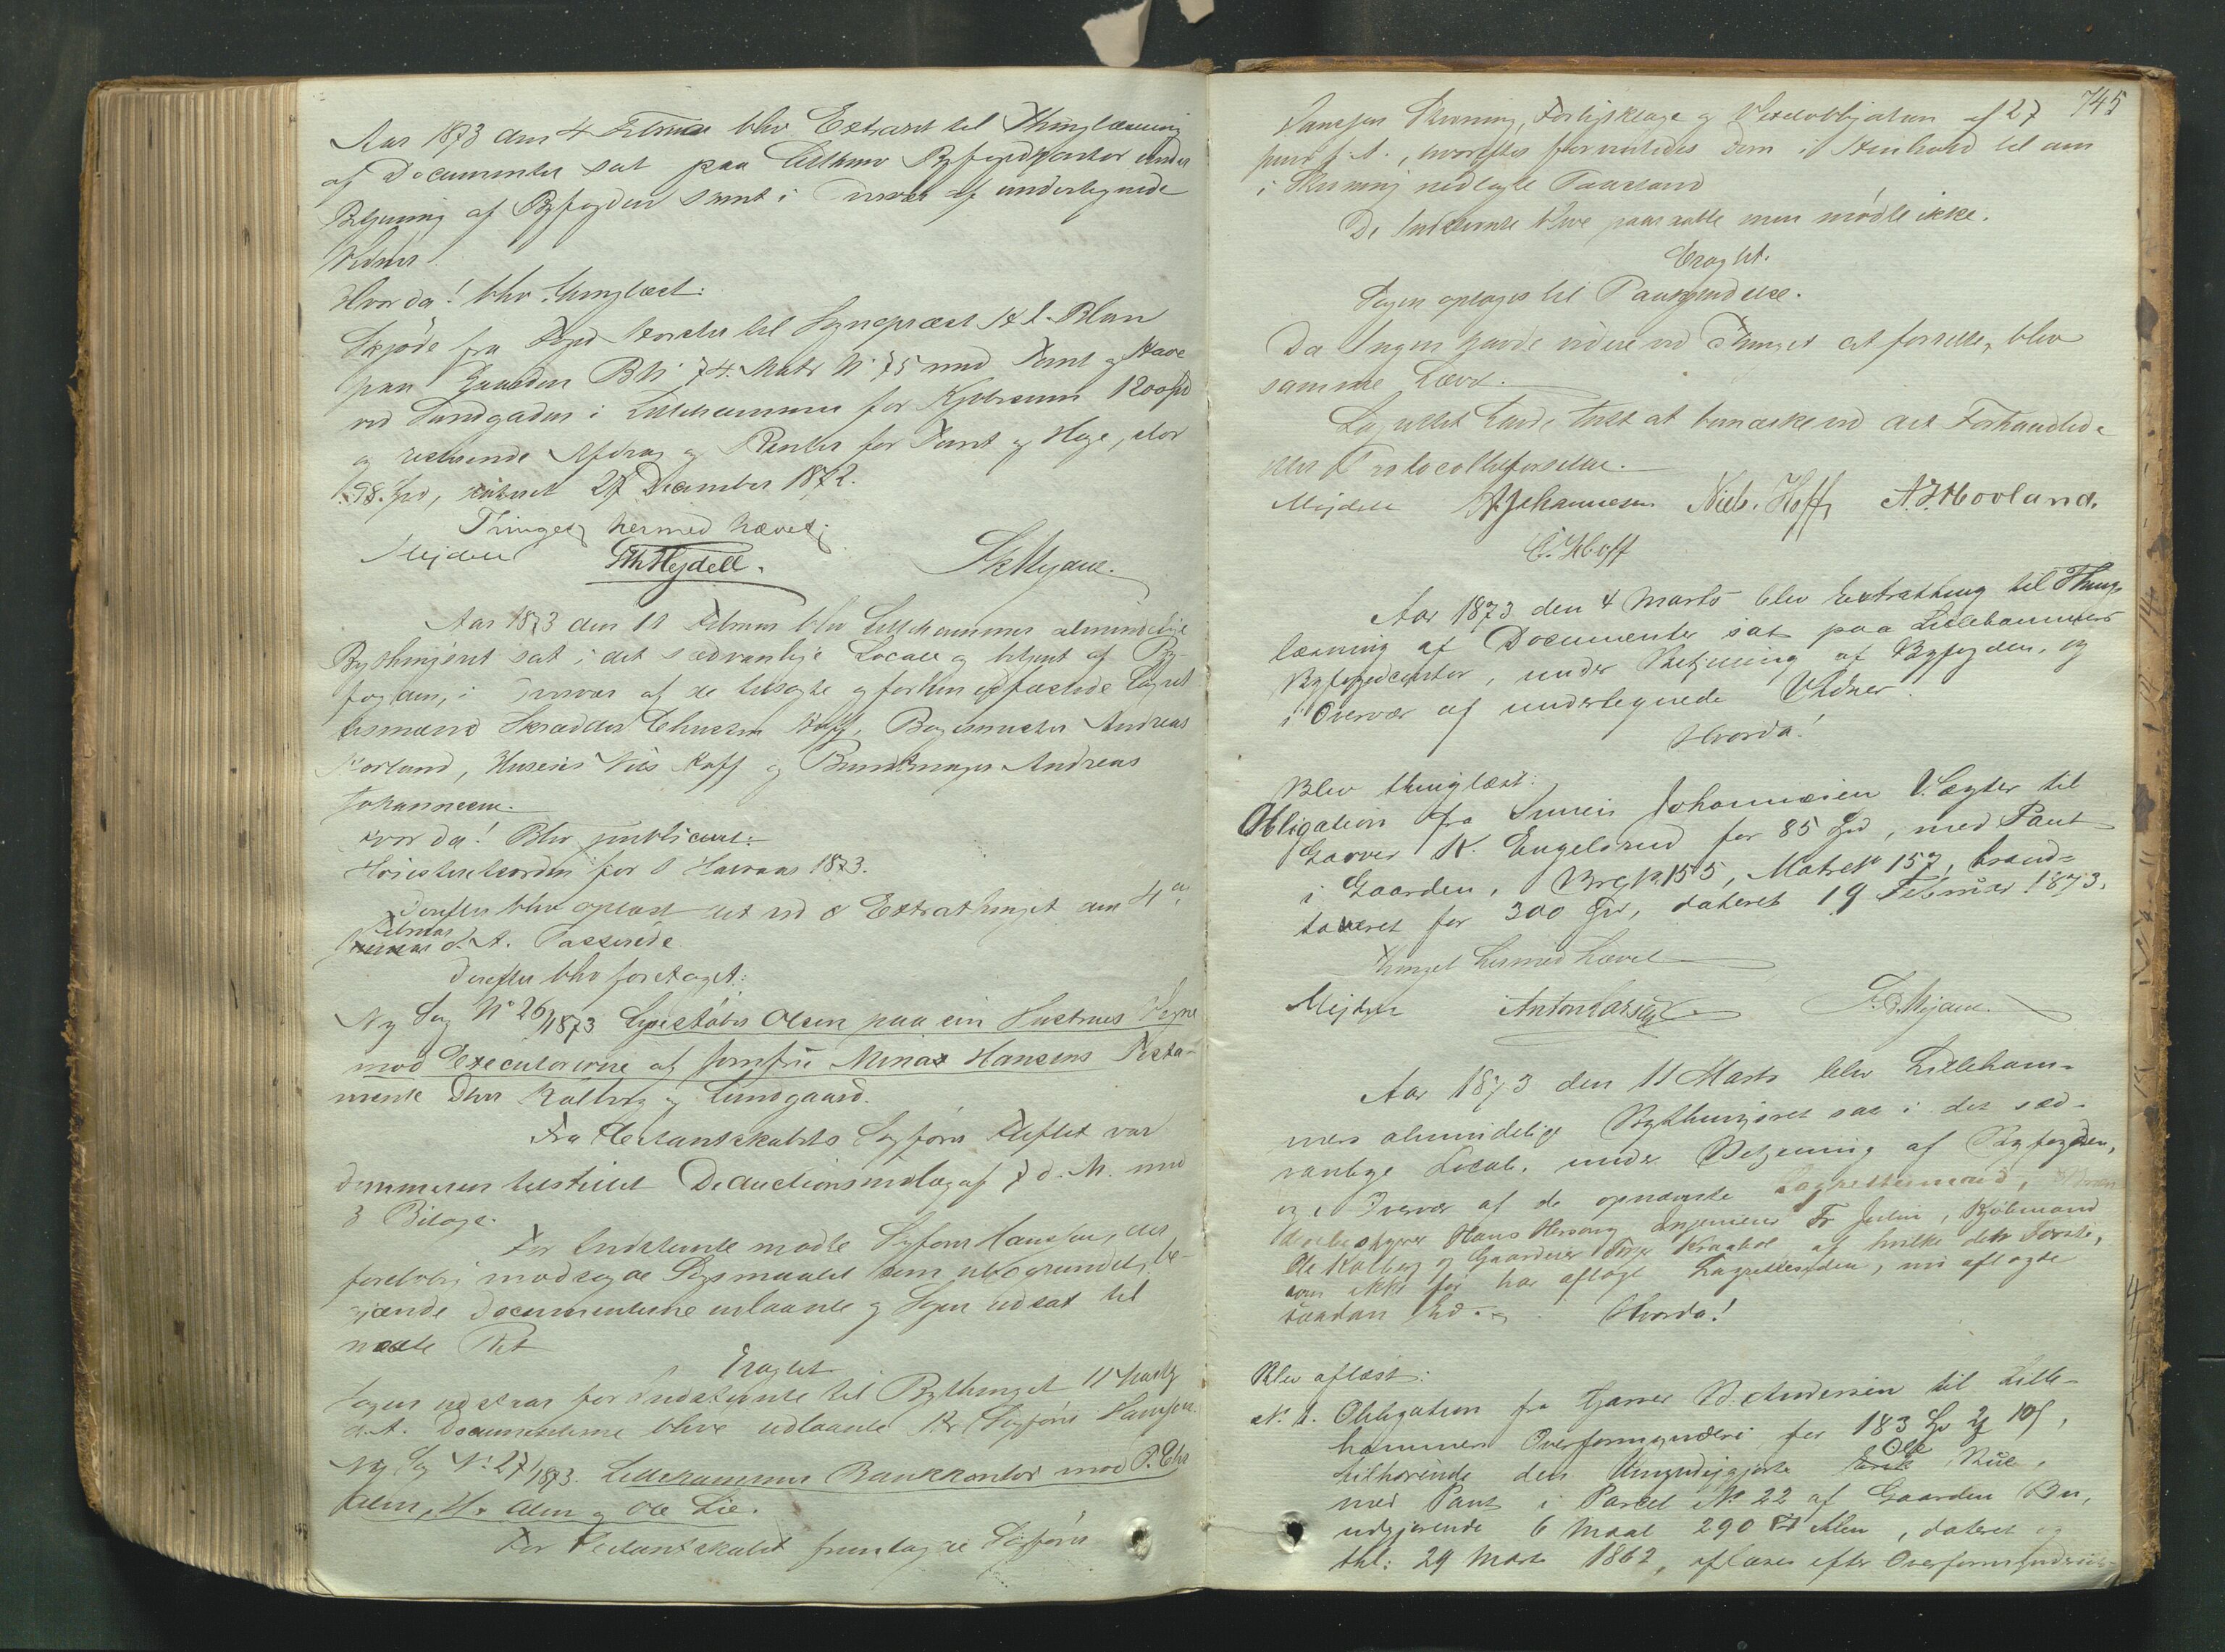 Aar 1873 den 4 Februar blev Extraret til Thinglæsning
af Documenter sat paa Lillehmr Byfogedcontor under
Betjening af Byfogden samt i Overvær af undertegnede
Vidner
Hvorda! blev thinglæst:
Skjøde fra Foged til Sogneprest Blom
paa Gaarden BN: 74. Matr N: 75 med Tomt og Have
ved Sandgaden i Lillehammer for Kjøbesum 1200 Spd
og resterende Afdrag og Renter for Tomt og Hage, stor
198. Spd, dateret 27 December 1872.
Thinget hermed hævet;
Mejdell Mejdell.
Aar 1873 den 11 Februar blev Lillehammer almindelige
Bythingsret sat i det sædvanlige Locale og betjent af By-
fogden, i Overvær af de tilsagte og forhen edfæstede Lagret-
tesmænd Skrædder Hoff, Bogermester Andreas
Hovland, Huseier Nils Hoff og Buntmager Andreas
Johannesen.
Hvorda! Blev publiceret:
Høiesteretsorden for 1 Halvaar 1873.
Derefter blev oplæst det ved Extrathinget den 4de
Februar
d. A. Passerede
Derefter blev foretaget:
Ny Sag No 26/1873 Olsen paa sin Hustrues Vegne
mod Executorerne af Jomfru Minas Hansens Testa-
mente Kolberg og Lundgaard.
Fra Citantskabets Sagfører var
Dommeren tilstillet Deductionsindlæg af 7 d. M. med
3 Bilage.
For Indstevnte mødte Sagfører Hanssen, der
foreløbig modsagde Sagsmaalet som ubegrundet, be-
gjærede Documenterne udlaante og Sagen udsat til
næste Ret
Eragtet
Sagen udstaar for Indstevnte til Bythinget 11 Marts
d. A. Documenterne blive udlaante Hr Sagfører Hanssen.
Ny Sag No 27/1873. Lillehammer Bankkontor mod P. Chr
Alm, H. Alm og Ole Lie.
For Citantskabet fremlagde Sagfører
745
Hanssen Stevning, Forligsklage og Vexelobligation af 27
f. A., hvorefter procederedes Dom i Henhold til den
i Stevning nedlagte Paastand
De Indstevnte bleve paaraabte men mødte ikke.
Eragtet.
Sagen optages til Paakjendelse.
Da Ingen havde videre ved Thinget at forrette, blev
samme hævet.
Lagrettet havde Intet at bemærke ved det Forhandlede
eller Protocollførselen.
Mejdell A Johannesen Niels. Hoff A. J. Hovland.
C. Hoff
Aar 1873 den 4 Marts blev Extrathing til Thing-
læsning af Documenter sat paa Lillehammers
Byfogedcontor, under Betjening af Byfogden, og
i Overvær af undertegnede Vidner.
Hvorda!
Blev thinglæst:
Obligation fra Simen Johannesen Vægter til
Garver K. Engelsrud for 85 Spd, med Pant
i Gaarden, Brg N. 155, Matr No 157, brand-
taxeret for 300 Spd, dateret 19 Februar 1873.
Thinget hermed hævet
Mejdell Anton Larsen
Aar 1873 den 11 Marts blev Lilleham-
mers almindelige Bythingsret sat i det sæd-
vanlige Local. under Betjening af Byfogden,
og i Overvær af de opnævnte Lagrettesmænd,
Hans Ingenieur Fr Juelin, Kjøbmand
Ole Kolberg og Gaardeier Krogbøl af hvilke den Første,
som ikke før har aflagt Lagretteseden, nu aflagde
saadan Ed. Hvorda!
Blev aflæst:
No 1. Obligation fra Garver Andersen til Lille-
hammers Overformynderi for 183 Spd 2 10,
tilhørende den Umyndiggjorte Ole
med Pant i Parcel No 22 af Gaarden
udgjørende 6 Maal 290 Alen, dateret og
thl: 29 Marts 1862, aflæses efter Overformynderiets